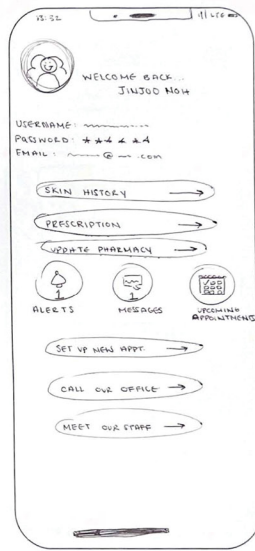 15:32 LTE
WELCOME BACK...
JINJOO NOH
USERNAME:
PASSWORD: ******
EMAIL: @ .com
SKIN HISTORY
PRESCRIPTION
UPDATE PHARMACY
1 1
ALERTS MESSAGES UPCOMING
APPOINTMENTS
SET UP NEW APPT.
CALL OUR OFFICE
MEET OUR STAFF